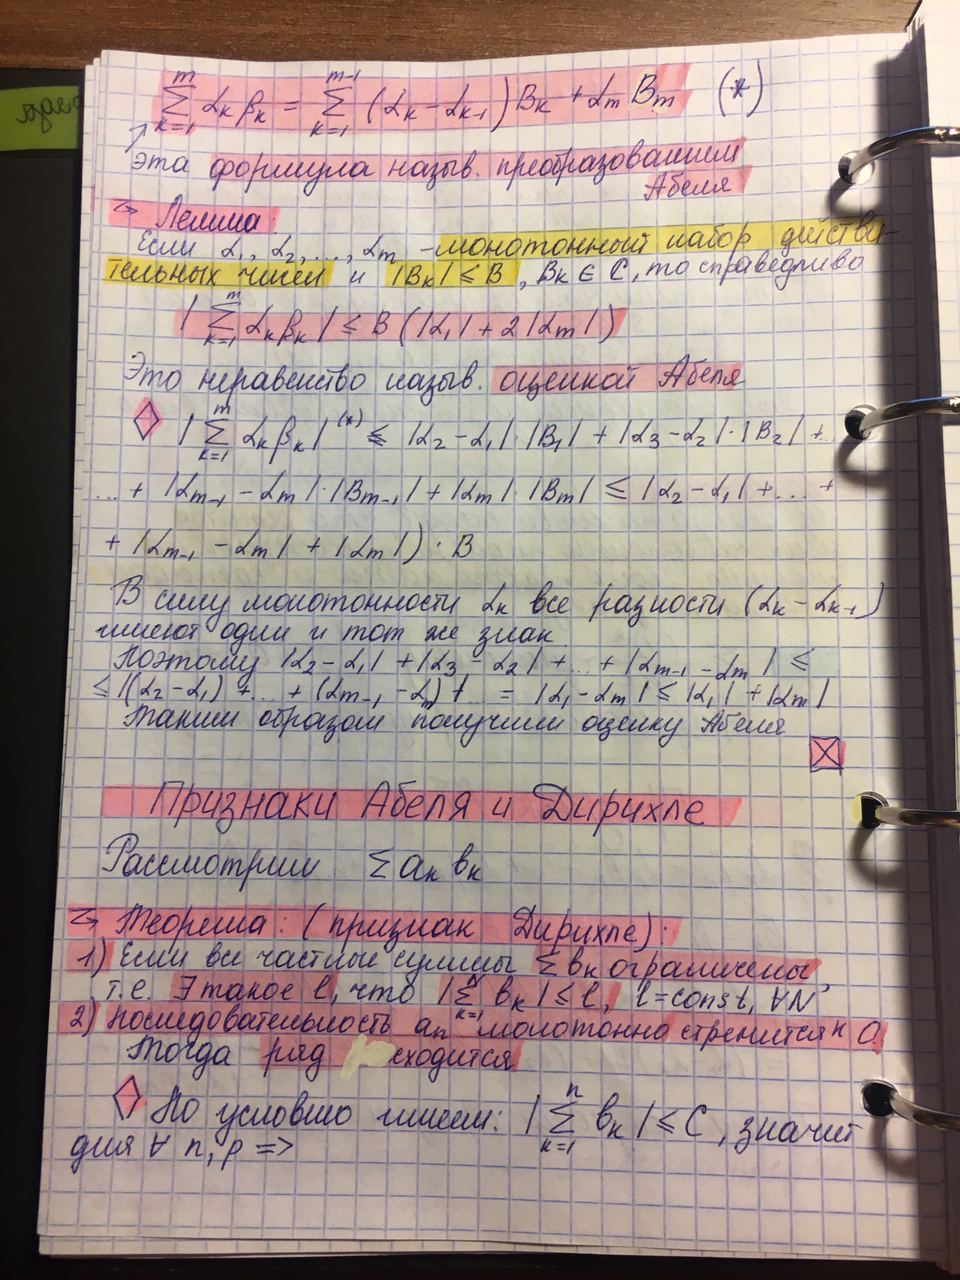 ∑_{k=1}^{m} α_k β_k = ∑_{k=1}^{m-1} (α_k - α_{k-1}) B_k + α_m B_m (*)
Эта формула назыв. преобразованием
Абеля
Лемма:
Если α_1, α_2, ..., α_m - монотонный набор действи-
тельных чисел и |B_k| ≤ B, B_k ∈ C, то справедливо
|∑_{k=1}^{m} α_k β_k| ≤ B (|α_1| + 2|α_m|)
Это неравенство назыв. оценкой Абеля
◊ |∑_{k=1}^{m} α_k β_k| (*) ≤ |α_2 - α_1|·|B_1| + |α_3 - α_2|·|B_2| + ...
... + |α_{m-1} - α_m|·|B_{m-1}| + |α_m|·|B_m| ≤ |α_2 - α_1| + ... +
+ |α_{m-1} - α_m| + |α_m|)·B
В силу монотонности α_k все разности (α_k - α_{k-1})
имеют один и тот же знак
Поэтому |α_2 - α_1| + |α_3 - α_2| + ... + |α_{m-1} - α_m| ≤
≤ |(α_2 - α_1) + ... + (α_{m-1} - α_m)| = |α_1 - α_m| ≤ |α_1| + |α_m|
Таким образом получили оценку Абеля
Признаки Абеля и Дирихле
Рассмотрим ∑ a_k b_k
Теорема: (признак Дирихле):
1) Если все частные суммы ∑ b_k ограничены
т.е. ∃ такое C, что |∑_{k=1}^{n} b_k| ≤ C, C = const, ∀N
2) последовательность a_n монотонно стремится к 0
Тогда ряд сходится
◊ По условию имеем: |∑_{k=1}^{n} b_k| ≤ C, значит
для ∀ n, p =>